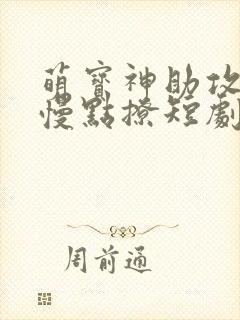 萌寶神助攻
慢點撩短劇
周前通